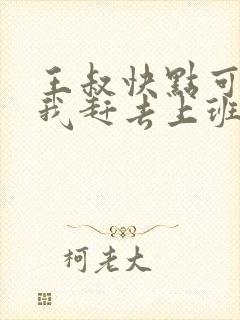 王叔快點可
我赶去上班
柯老大